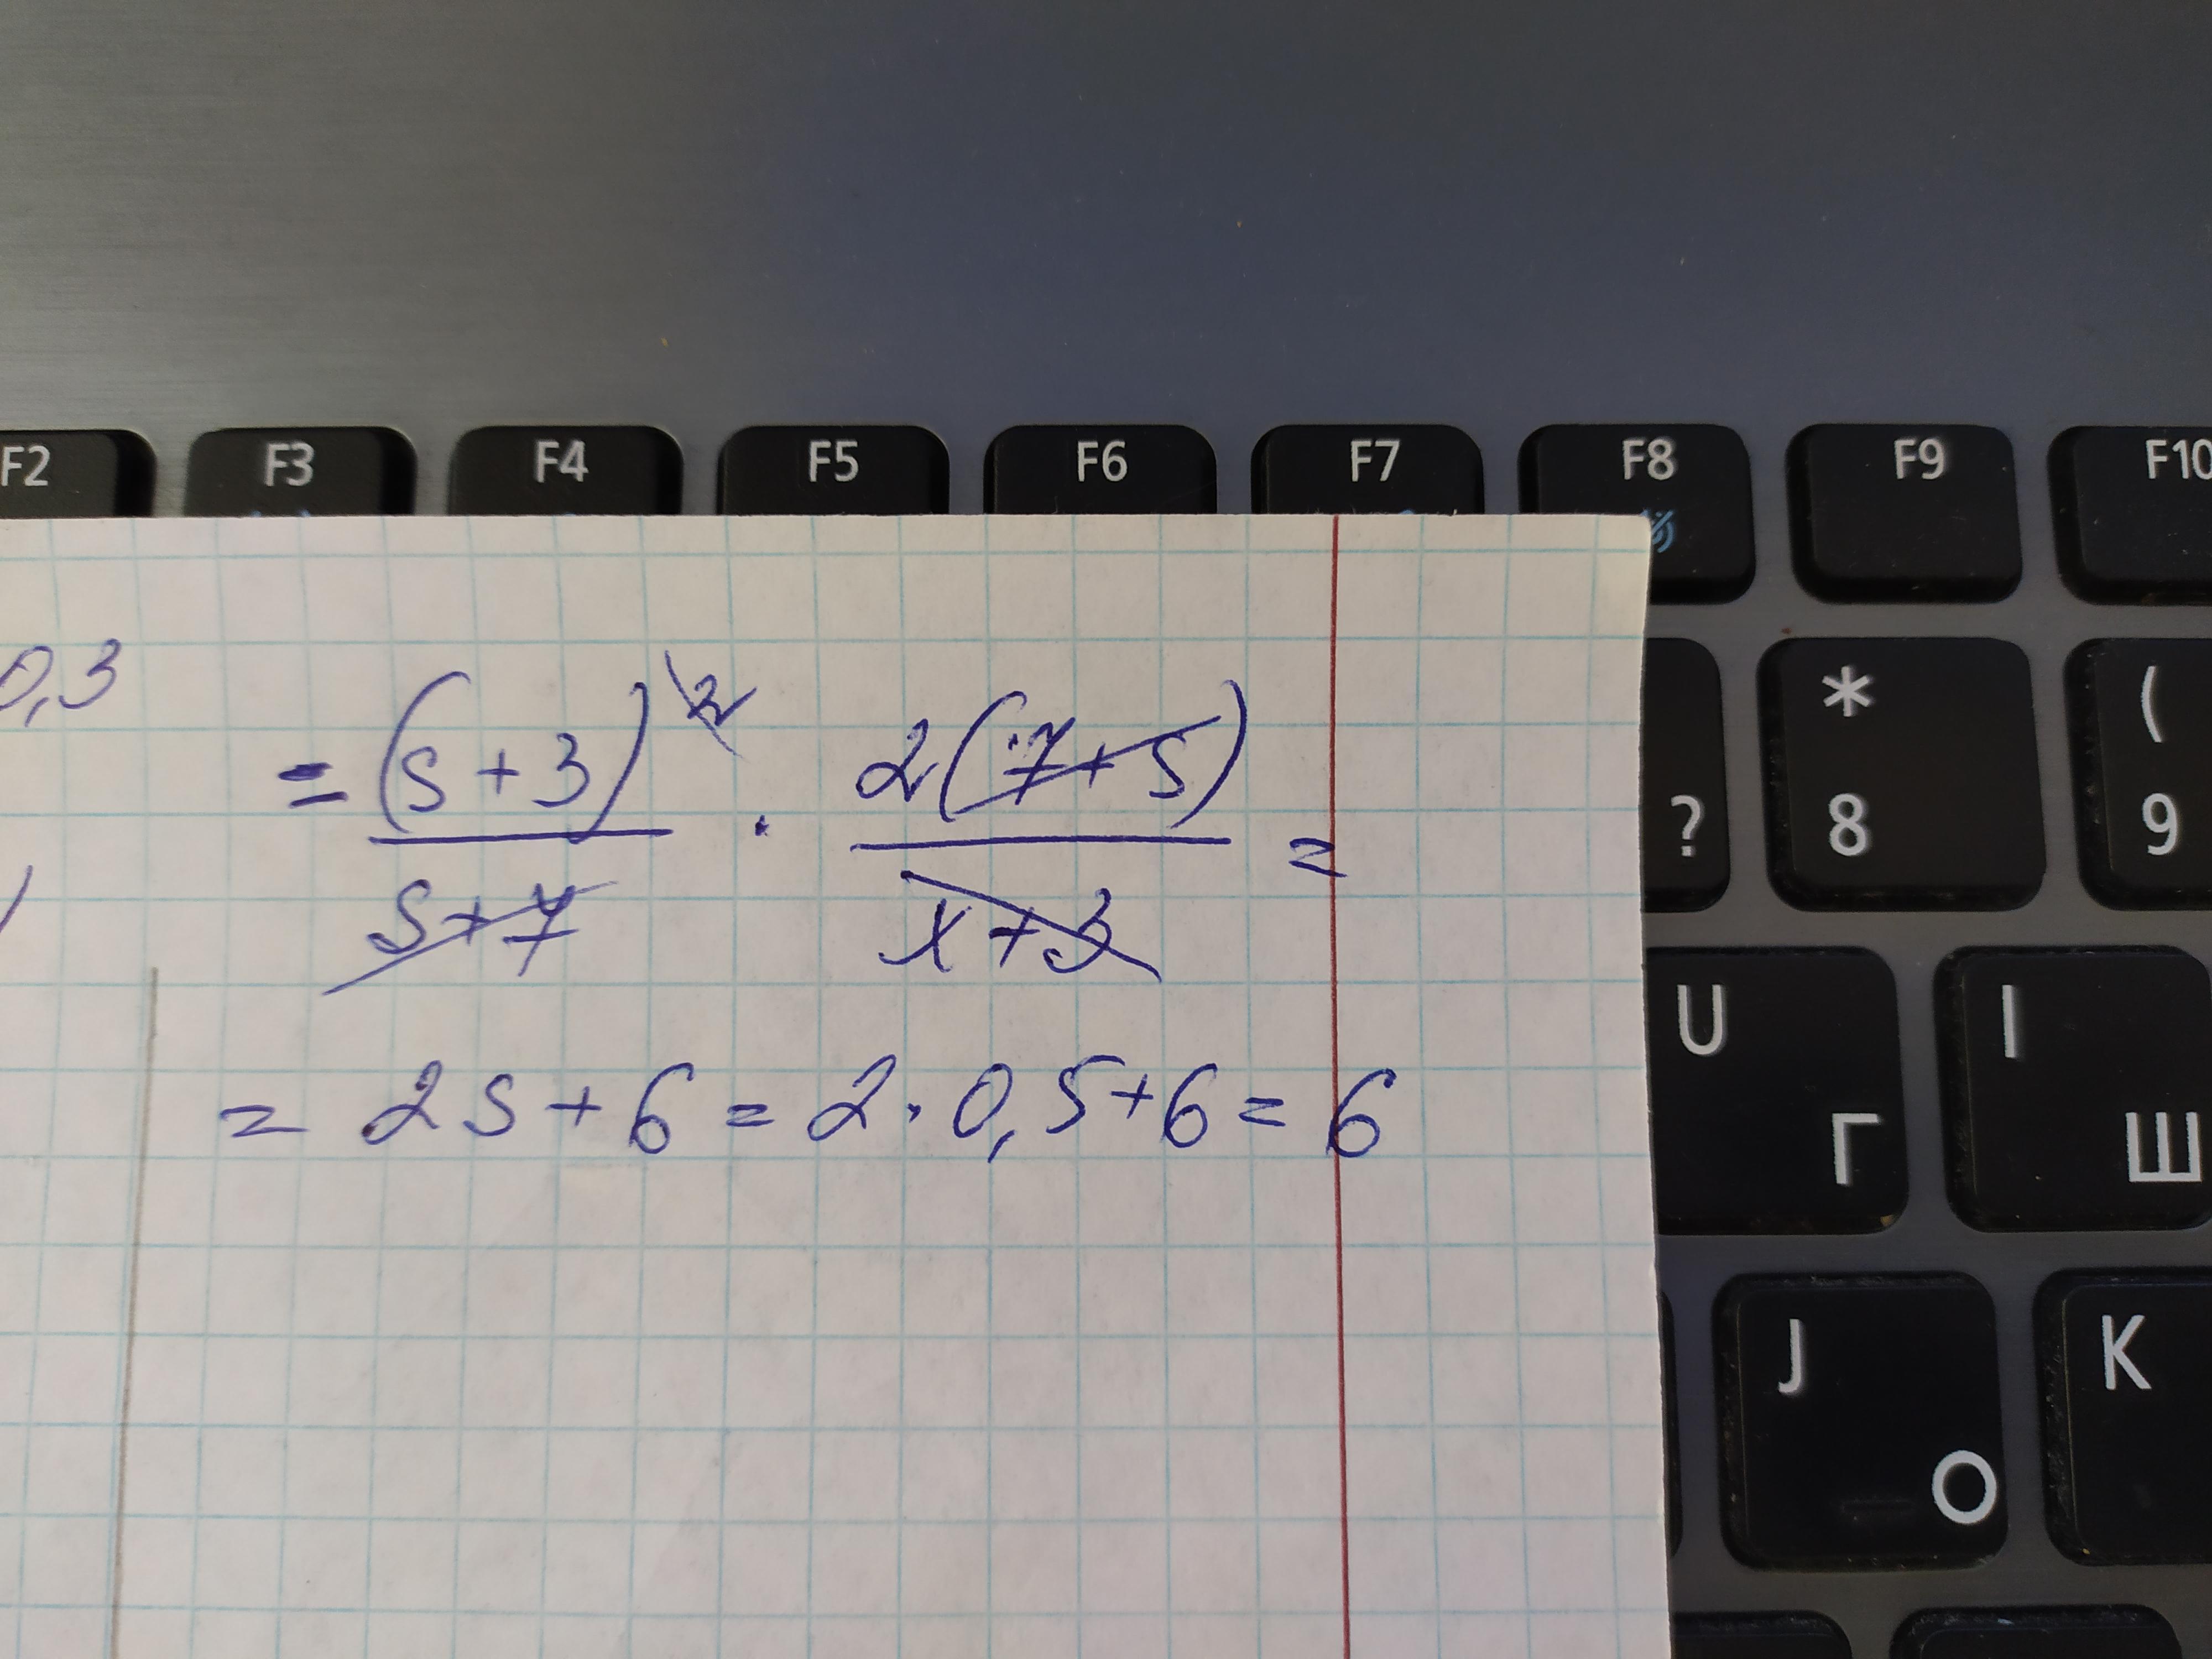 F2 F3 F4 F5 F6 F7 F8 F9 F10
* (
? 8 9
U I
Г Ш
J K
О
0,3
= (s+3)^2 / (s+7) · 2(7+s) / (x+3) =
= 2s + 6 = 2 · 0,5 + 6 = 6